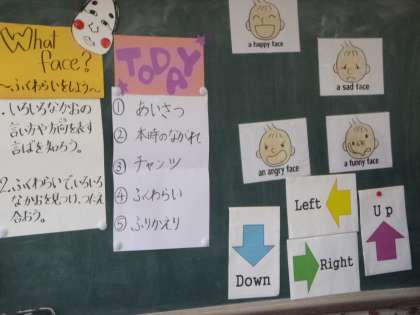 What
face?
～ふくわらいをしよう～
1. いろいろなかおの
言い方や方向を表す
言ばを知ろう。
2. ふくわらいで、いろいろ
なかおを見つけ、つたえ
合おう。
TODAY
① あいさつ
② 本時のながれ
③ チャンツ
④ ふくわらい
⑤ ふりかえり
a happy face
a sad face
an angry face
a funny face
Down
Left
Right
Up